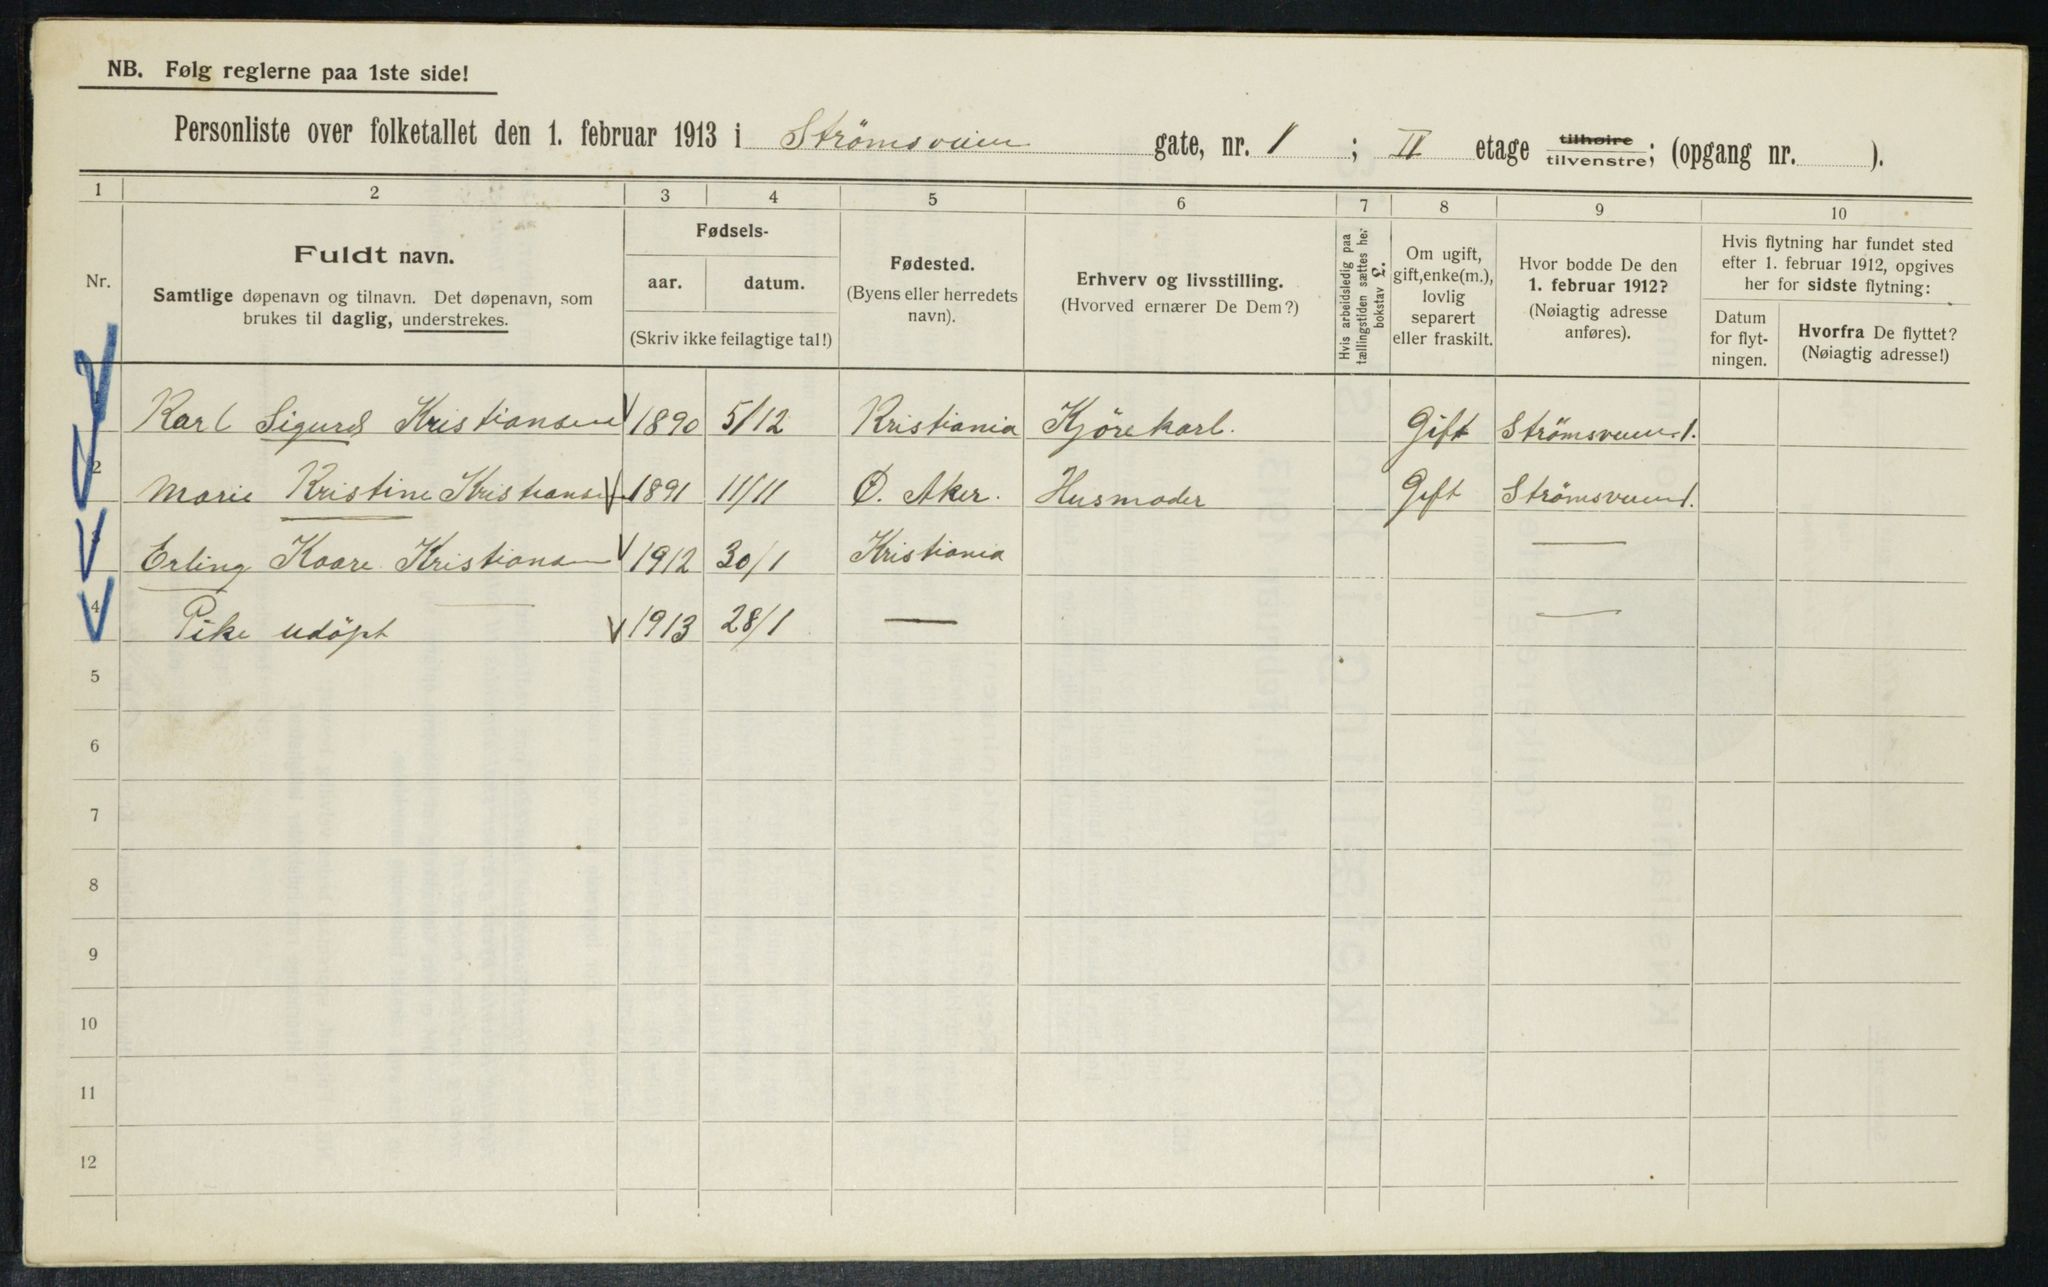 NB. Følg reglerne paa 1ste side!
Personliste over folketallet den 1. februar 1913 i Strömsveien gate, nr. 1 ; II etage tilhøire tilvenstre; (opgang nr. ).
1 2 3 4 5 6 7 8 9 10
Nr.
Fuldt navn.
Samtlige døpenavn og tilnavn. Det døpenavn, som
brukes til daglig, understrekes.
Fødsels-
aar. datum.
(Skriv ikke feilagtige tal!)
Fødested.
(Byens eller herredets
navn).
Erhverv og livsstilling.
(Hvorved ernærer De Dem?)
Hvis arbeidsledig paa
tællingstiden sættes her
bokstav L.
Om ugift,
gift, enke(m.),
lovlig
separert
eller fraskilt.
Hvor bodde De den
1. februar 1912?
(Nøiagtig adresse
anføres).
Hvis flytning har fundet sted
efter 1. februar 1912, opgives
her for sidste flytning:
Datum
for flyt-
ningen.
Hvorfra De flyttet?
(Nøiagtig adresse!)
1 Karl Sigurd Kristiansen 1890 5/12 Kristiania Kjörekarl. Gift Strömsveien 1.
2 Marie Kristine Kristiansen 1891 11/11 Ø. Aker. Husmoder Gift Strömsveien 1.
3 Erling Kaare Kristiansen 1912 30/1 Kristiania —
4 Pike udöpt 1913 28/1 — —
5
6
7
8
9
10
11
12